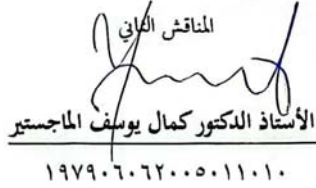 المناقش الثاني
الأستاذ الدكتور كمال يوسف الماجستير
١٩٧٩٠٦٠٦٢٠٠٥٠١١٠١٠